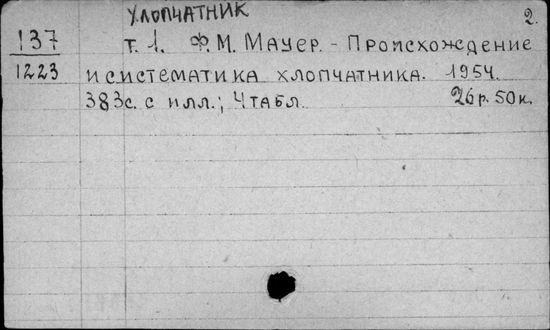 Хлопчатник 2.
137 т. 1. Ф. М. Мауер. - Происхождение
1223 и систематика хлопчатника. 1954.
383с. с илл.; 4 табл. 26 р. 50 к.